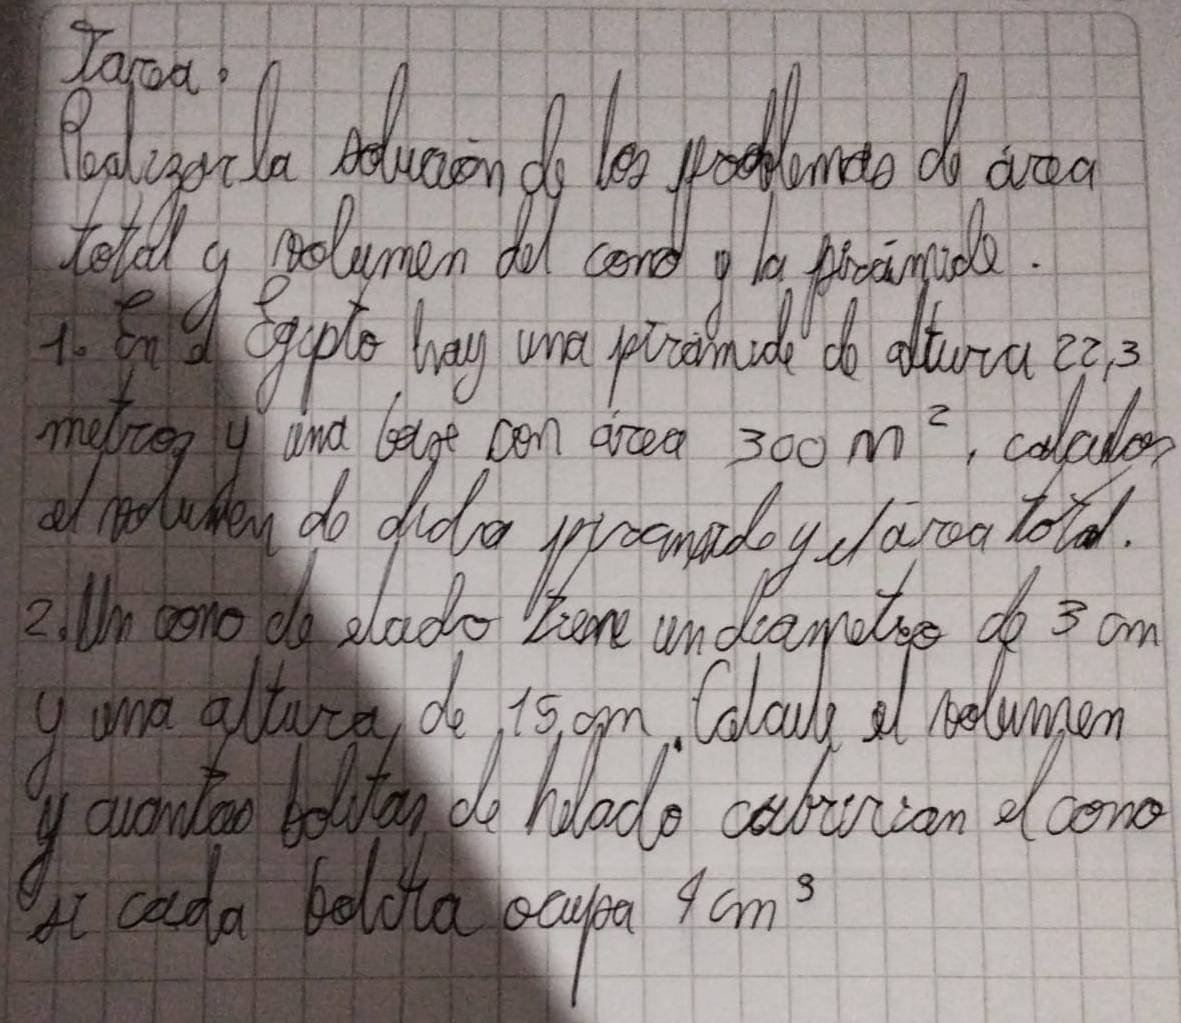 Tarea:
Realizar la solución de los problemas de área
total y volumen del cono y la pirámide.
1. En el Egipto hay una pirámide de altura 22,3
metros y una base con área 300 m², calcular
el volumen de dicha piramide y el área total.
2. Un cono de elado tiene un diametro de 3 cm
y una altura de 15 cm. Calcule el volumen
y cuantas bolitas de helado cubririan el cono
si cada bolita ocupa 4 cm³